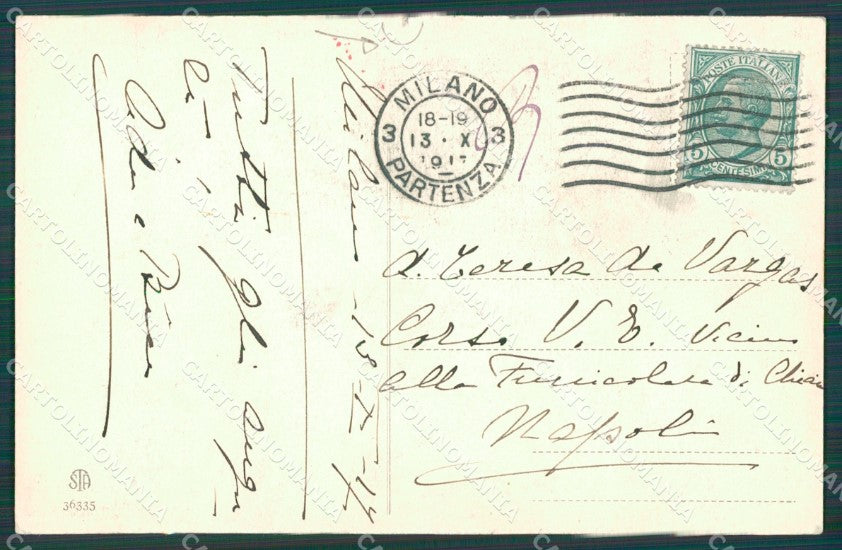 Milano 13-X-17
Tutti gli augu
ri
Ada e Bice
MILANO
18-19
3 13·X 3
191
PARTENZA
POSTE ITALIANE
5 5
CENTESIMI
d. Teresa de Vargas
Corso V. E. Vicino
alla Funicolare di Chiaia
Napoli
STA
36335
CARTOLINOMANIA